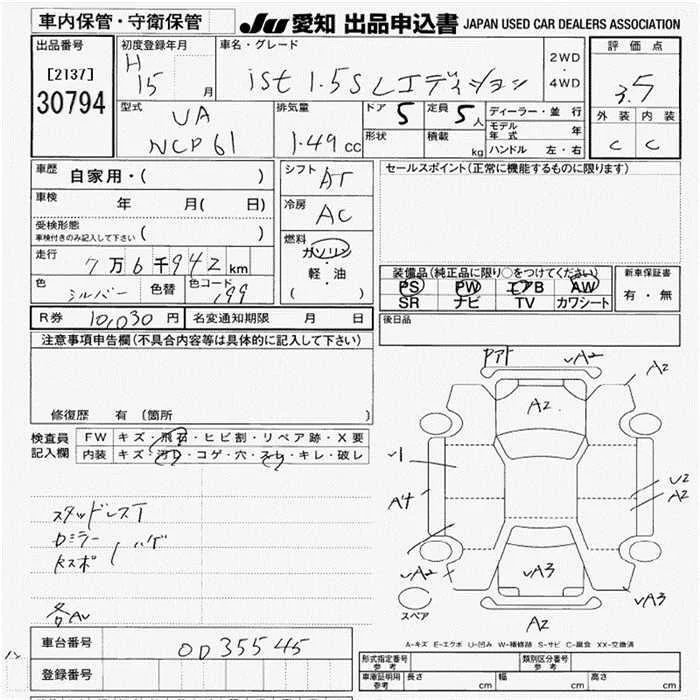 車内保管・守衛保管
JU 愛知 出品申込書 JAPAN USED CAR DEALERS ASSOCIATION
出品番号
[2137]
30794
初度登録年月
H
15 月
車名・グレード
ist 1.5S Lエディション
2WD
・
4WD
評価点
3.5
外装 内装
C C
型式
UA
NCP61
排気量
1.49 cc
ドア 5
定員 5 人
形状
積載 kg
ディーラー・並行
モデル年式 年
ハンドル 左・右
車歴 自家用・( )
車検 年 月( 日)
受検形態
車検付きのみ記入して下さい ( )
走行
7万6千942 km
色 シルバー 色替 色コード 199
シフト AT
冷房 AC
燃料
ガソリン
・
軽・油
( )
セールスポイント(正常に機能するものに限ります)
装備品(純正品に限り○をつけてください)
PS PW エアB AW
SR ナビ TV カワシート
新車保証書
有・無
R券 10,030 円 名変通知期限 月 日
後日品
注意事項申告欄(不具合内容等は具体的に記入して下さい)
修復歴 有 〔箇所 〕
検査員
記入欄
FW キズ・飛石・ヒビ割・リペア跡・X要
内装 キズ・汚れ・コゲ・穴・スレ・キレ・破レ
スタッドレスT
Dミラー
Rスポ ハゲ
各AU
アト
A2
A2
A2
A4
U2
A2
A2
A3
A3
A2
スペア
A-キズ E-エクボ U-凹み W-補修跡 S-サビ C-腐食 XX-交換済
車台番号 0035545
登録番号
形式指定番号
参考
類別区分番号
参考
車庫証明用
参考
長さ cm 幅 cm 高さ cm